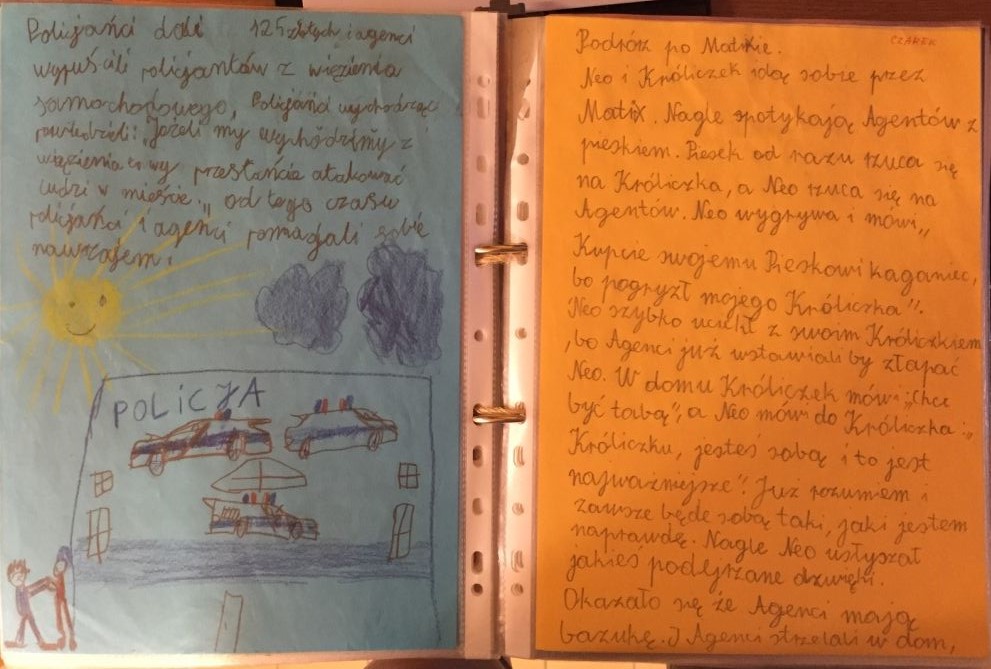 Policjańci dali 125 złotych i agenci
wypuścili policjantów z więzienia
samochodowego, Policjańci wychodrząc
powiedzieli: „Jeżeli my wychodzimy z
więzienia to wy przestańcie atakować
ludzi w mieście„ od tego czasu
policjańci i agenci pomagali sobie
nawzajem.
POLICJA
CZAREK
Podróż po Matrixie.
Neo i Króliczek idą sobie przez
Matrix. Nagle spotykają Agentów z
pieskiem. Piesek od razu rzuca się
na Króliczka, a Neo rzuca się na
Agentów. Neo wygrywa i mówi„
Kupcie swojemu Pieskowi kaganiec,
bo pogryzł mojego Króliczka".
Neo szybko uciekł z swoim Króliczkiem
, bo Agenci już wstawiali by złapać
Neo. W domu Króliczek mówi „Chcę
być tobą", a Neo mówi do Króliczka:„
Króliczku, jesteś sobą i to jest
najważniejsze". Już rozumiem i
zawsze będe sobą taki, jaki jestem
naprawdę. Nagle Neo usłyszał
jakieś podejrzane dzwięki.
Okazało się że Agenci mają
bazukę. I Agenci strzelali w dom,